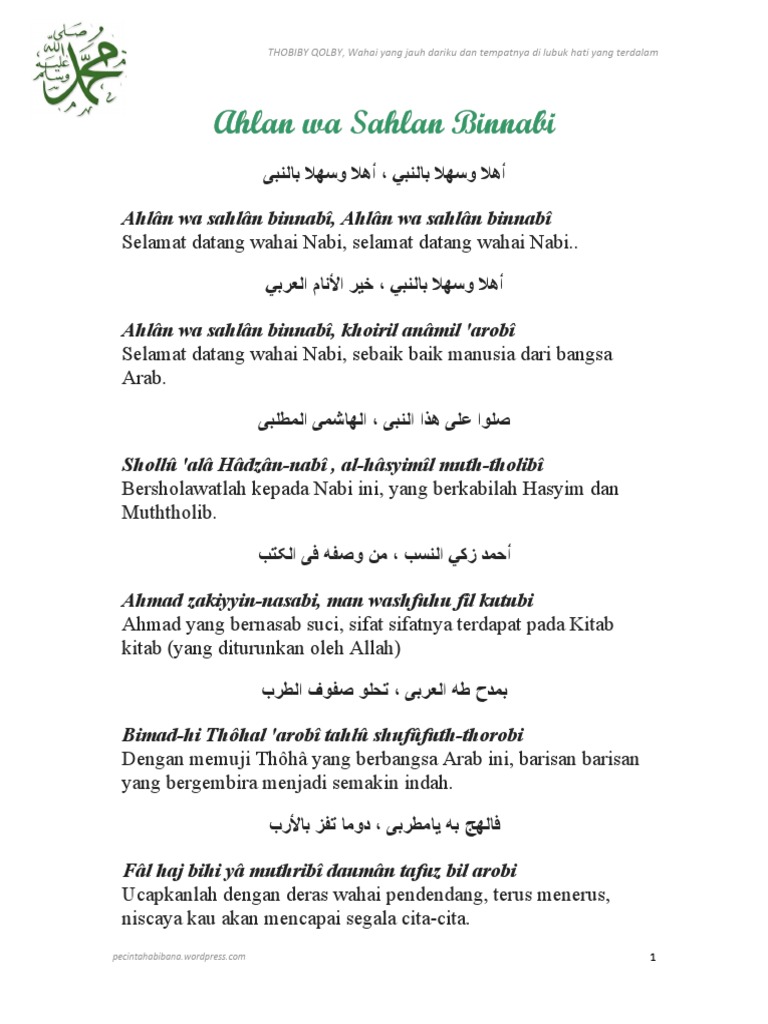 محمد صلى الله عليه وسلم
THOBIBY QOLBY, Wahai yang jauh dariku dan tempatnya di lubuk hati yang terdalam
Ahlan wa Sahlan Binnabi
أهلا وسهلا بالنبي ، أهلا وسهلا بالنبى
Ahlân wa sahlân binnabî, Ahlân wa sahlân binnabî
Selamat datang wahai Nabi, selamat datang wahai Nabi..
أهلا وسهلا بالنبي ، خير الأنام العربي
Ahlân wa sahlân binnabî, khoiril anâmil 'arobî
Selamat datang wahai Nabi, sebaik baik manusia dari bangsa
Arab.
صلوا على هذا النبى ، الهاشمى المطلبى
Shollû 'alâ Hâdzân-nabî , al-hâsyimîl muth-tholibî
Bersholawatlah kepada Nabi ini, yang berkabilah Hasyim dan
Muththolib.
أحمد زكي النسب ، من وصفه فى الكتب
Ahmad zakiyyin-nasabi, man washfuhu fil kutubi
Ahmad yang bernasab suci, sifat sifatnya terdapat pada Kitab
kitab (yang diturunkan oleh Allah)
بمدح طه العربى ، تحلو صفوف الطرب
Bimad-hi Thôhal 'arobî tahlû shufûfuth-thorobi
Dengan memuji Thôhâ yang berbangsa Arab ini, barisan barisan
yang bergembira menjadi semakin indah.
فالهج به يامطربى ، دوما تفز بالأرب
Fâl haj bihi yâ muthribî daumân tafuz bil arobi
Ucapkanlah dengan deras wahai pendendang, terus menerus,
niscaya kau akan mencapai segala cita-cita.
pecintahabibana.wordpress.com
1